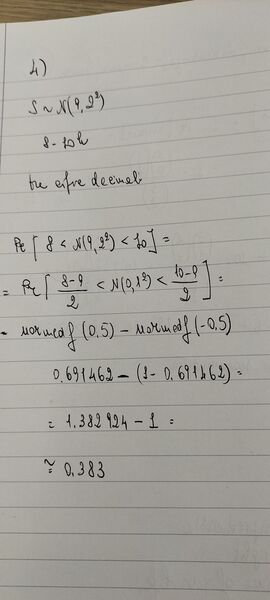 4)
S ~ N(9, 2²)
8-10h
tre cifre decimali
Pr [ 8 < N(9, 2²) < 10 ] =
= Pr [ (8-9)/2 < N(0, 1²) < (10-9)/2 ] =
= normcdf (0,5) - normcdf (-0,5)
0,691462 - (1 - 0,691462) =
= 1,382924 - 1 =
≅ 0,383